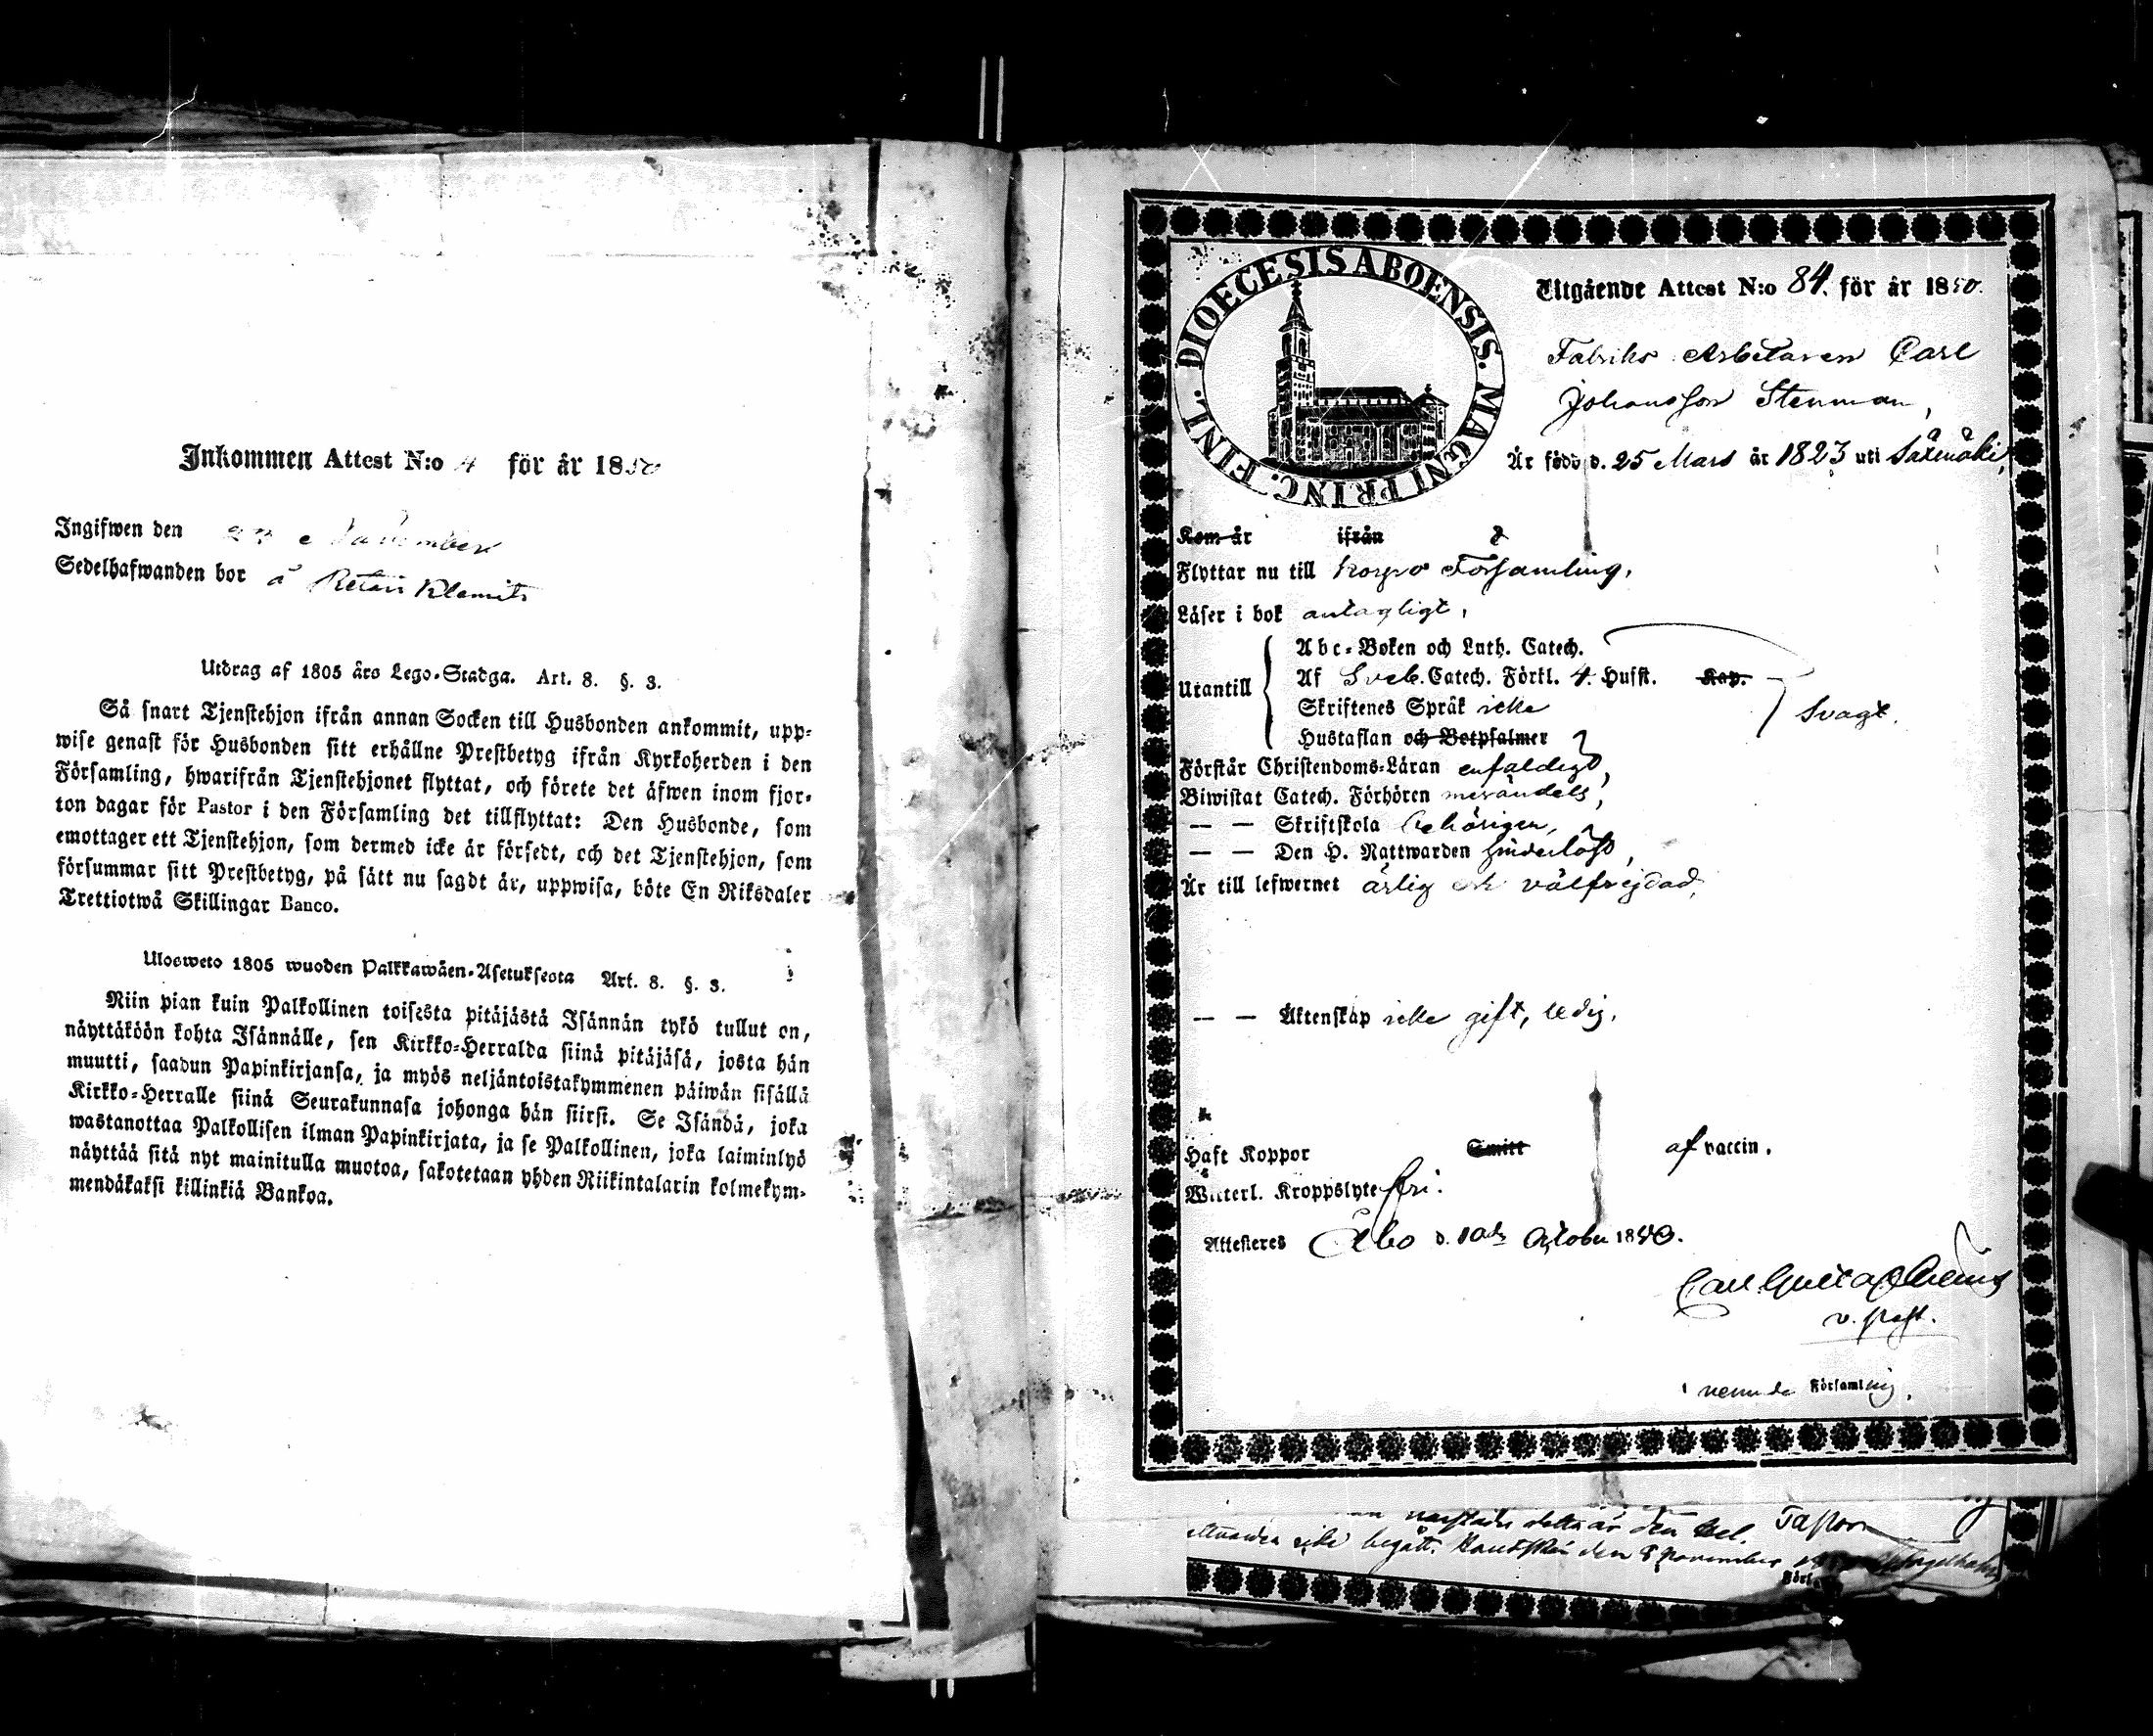 Inkommen Attest N:o 4 för år 1850
Ingifwen den November
Sedelhafwanden bor å Retais Klemets
Utdrag af 1805 års Lego-Stadga. Art. 8. §. 3.
Så snart Tjenstehjon ifrån annan Socken till Husbonden ankommit, upp-
wise genast för Husbonden sitt erhållne Prestbetyg ifrån Kyrkoherden i den
Församling, hwarifrån Tjenstehjonet flyttat, och förete det äfwen inom fjor-
ton dagar för Pastor i den Församling det tillflyttat: Den Husbonde, som
emottager ett Tjenstehjon, som dermed icke är försedt, och det Tjenstehjon, som
försummar sitt Prestbetyg, på sätt nu sagdt är, uppwisa, böte En Riksdaler
Trettiotwå Skillingar Banco.
Ulosweto 1805 wuoden Palkkawäen-Asetuksesta Art. 8. §. 3.
Niin pian kuin Palkollinen toisesta pitäjästä Isännän tykö tullut on,
näyttäköön kohta Isännälle, sen Kirkko-Herralda siinä pitäjäsä, josta hän
muutti, saadun Papinkirjansa, ja myös neljäntoistakymmenen päiwän sisällä
Kirkko-Herralle siinä Seurakunnasa johonga hän siirsi. Se Isändä, joka
wastanottaa Palkollisen ilman Papinkirjata, ja se Palkollinen, joka laiminlyö
näyttää sitä nyt mainitulla muotoa, sakotetaan yhden Riikintalarin kolmekym-
mendäkaksi killinkiä Bankoa.
DIOECESIS ABOENSIS. MAGNI PRINC. FINL.
Utgående Attest N:o 84. för år 1850.
Fabriks Arbetaren Carl
Johansson Stenman,
Är född d. 25 Mars år 1823 uti Säxmäki,
Kom år ifrån
Flyttar nu till Korpo Församling.
Läser i bok antagligt,
Utantill
Abc-Boken och Luth. Catech.
Af Sveb. Catech. Förkl. 4. Hufst. Kap.
Skriftenes Språk icke
Svagt.
Hustaflan och Botpsalmer
Förstår Christendoms-Läran enfaldigt,
Biwistat Catech. Förhören merändels,
— — Skriftskola behörigen,
— — Den H. Nattwarden hinderlöst,
Är till lefwernet ärlig och välfrejdad,
— — Äktenskap icke gift, ledig.
Haft Koppor Smitt af vaccin.
Witterl. Kroppslyte fri.
Attesteres Åbo d. 10de October 1850.
Carl Gustaf
v. past.
Församling.
detta år den
begått. den 8 november